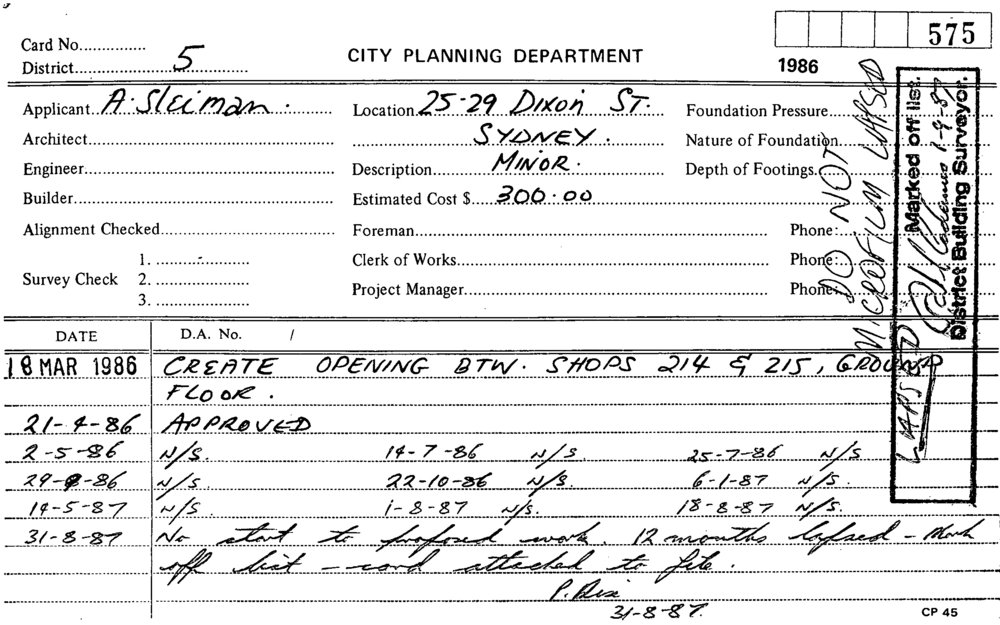 575
Card No...............
District 5
CITY PLANNING DEPARTMENT
1986
Applicant A. Sleiman.
Location 25-29 DIXON ST.
Foundation Pressure
Architect
SYDNEY.
Nature of Foundation
Engineer
Description MINOR.
Depth of Footings
Builder
Estimated Cost $ 300.00
Alignment Checked
Foreman
Phone:
Survey Check
1.
2.
3.
Clerk of Works
Phone:
Project Manager
Phone:
DO NOT
MICROFILM LAPSED
Marked off list.
1-9-87
District Building Surveyor.
LAPSED
DATE
D.A. No. /
18 MAR 1986 CREATE OPENING BTW. SHOPS 214 & 215, GROUND
FLOOR.
21-4-86 APPROVED
2-5-86 N/S. 14-7-86 N/S. 25-7-86 N/S
29-8-86 N/S. 22-10-86 N/S. 6-1-87 N/S.
14-5-87 N/S. 1-8-87 N/S. 18-8-87 N/S.
31-8-87 No start to proposed work. 12 months lapsed - Mark
off list - card attached to file.
31-8-87.
CP 45